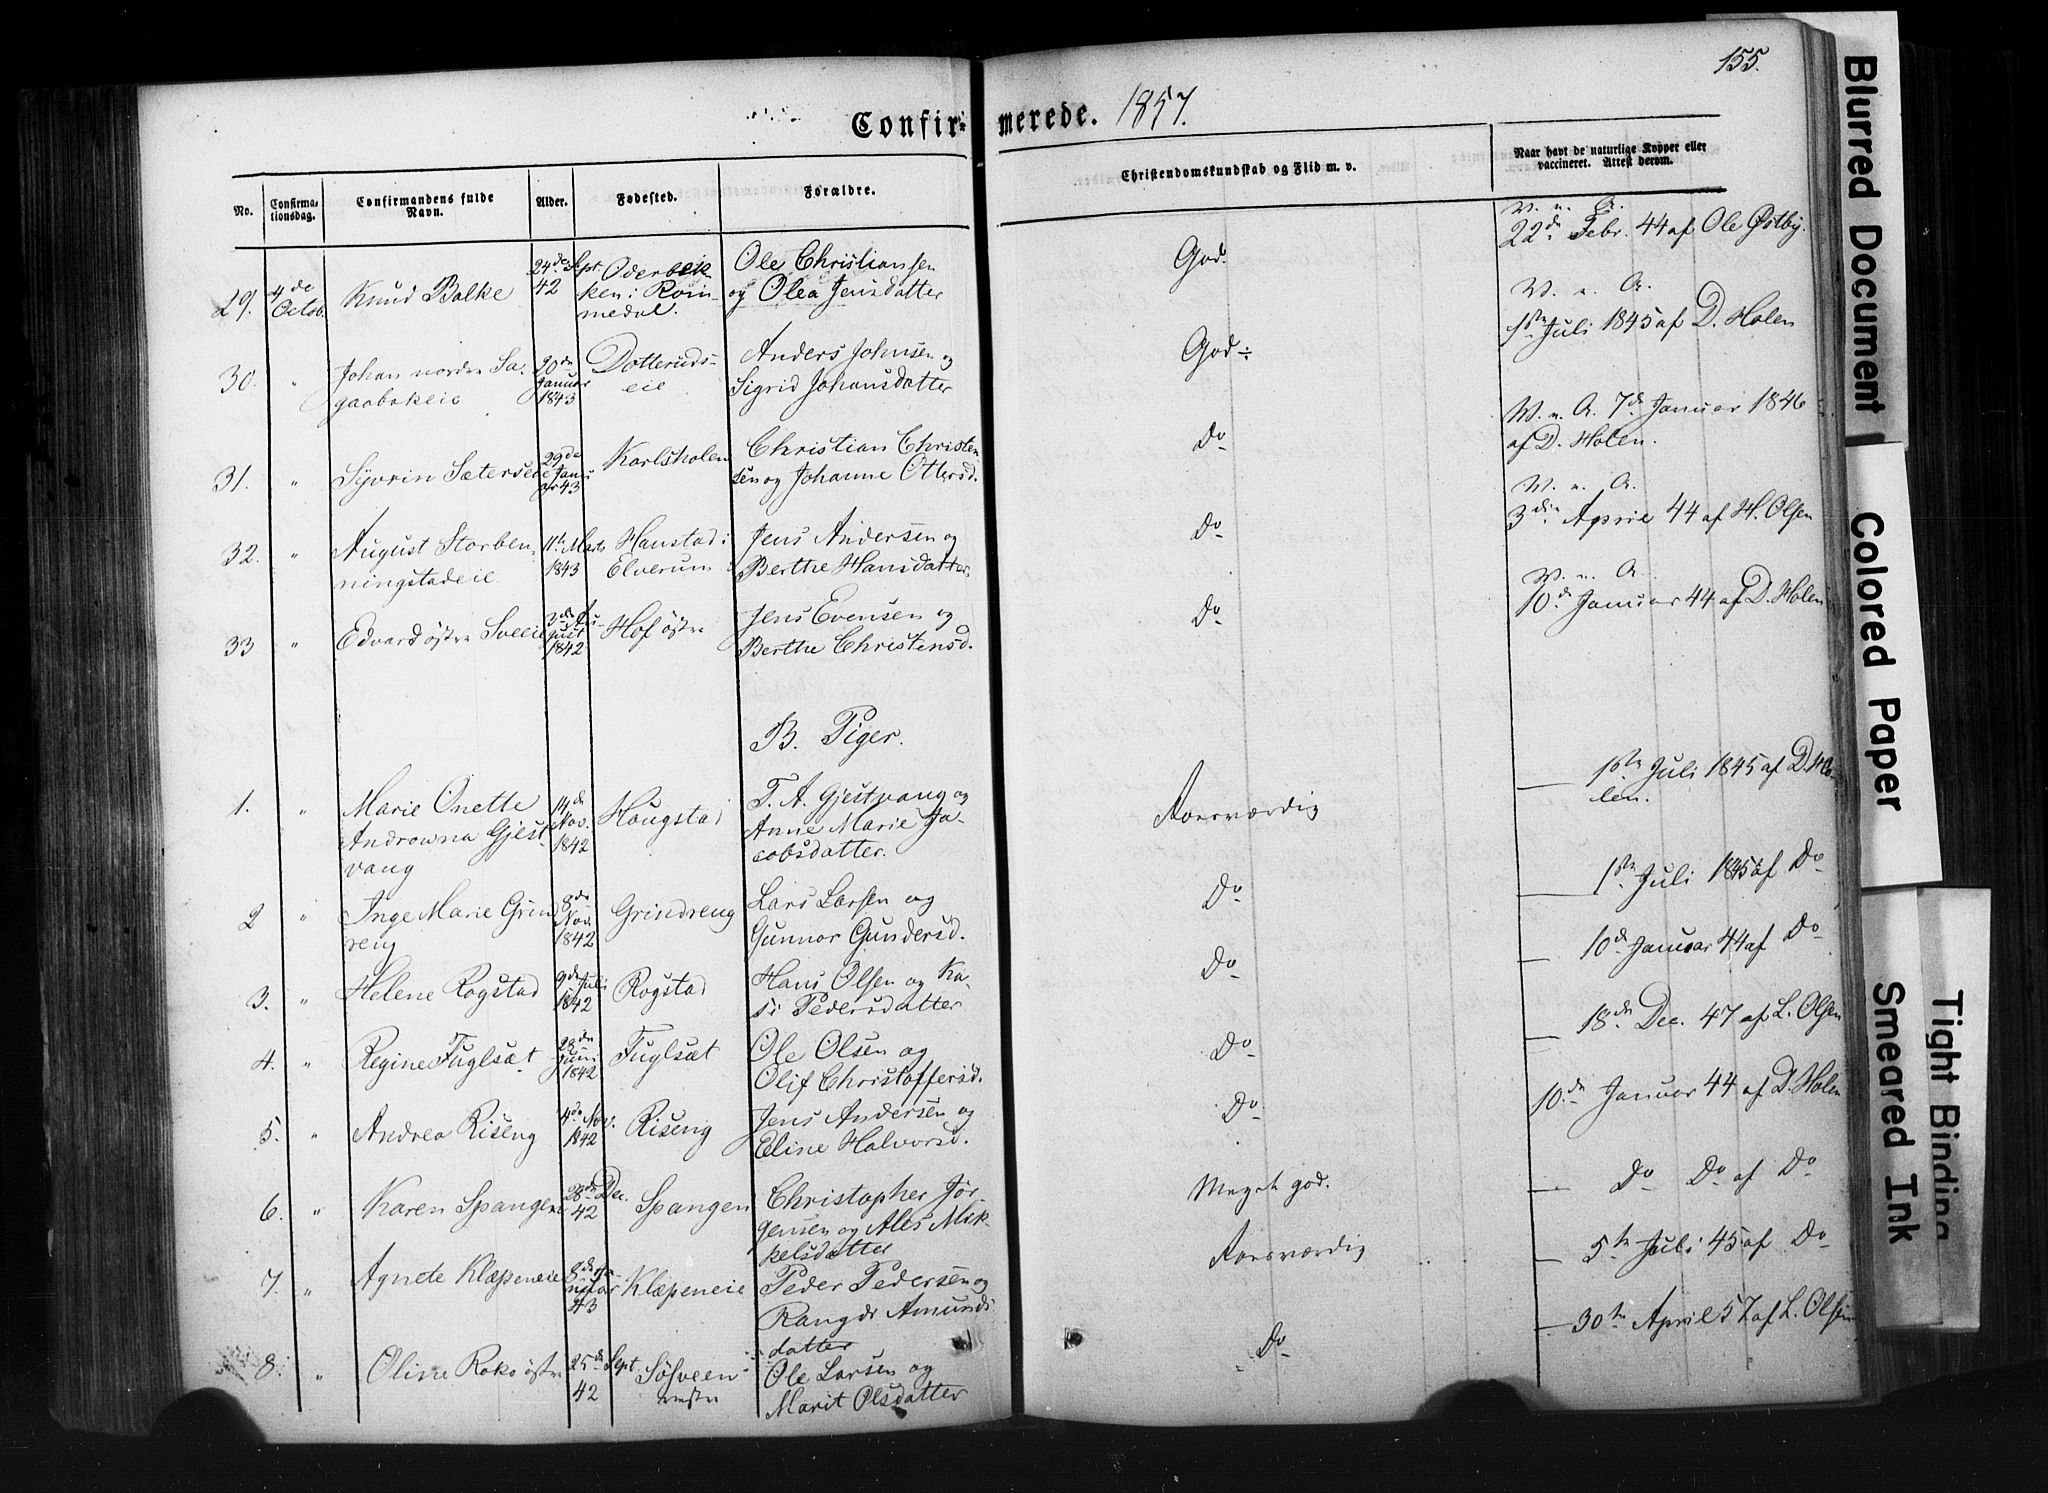 155.
Confirmerede. 1857.
No.
Confirmationsdag.
Confirmandens fulde Navn.
Alder.
Fødested.
Forældre.
Christendomskundskab og Flid m. v.
Naar havt de naturlige Kopper eller
vaccineret. Attest derom.
29. 4de Octob. Knud Balke 24de Sept. 42 Oderbekken i Rommedal. Ole Christiansen og Olea Jensdatter God. V. n. A. 22de Febr. 44 af Ole Østby.
30. " Johan nordre Sagaabakeie 20de Januar 1843 Dotterudseie Anders Johnsen og Sigrid Johansdatter God ÷ V. n. A. 1ste Juli 1845 af D. Holen
31. " Syvrin Sæterseie 29de Januar 43 Karlsholen Christian Christensen og Johanne Ottersd. Do V. n. A. 7de Januar 1846 af D. Holen.
32. " August Storbenningstadeie 11te Marts 1843 Hanstad i Elverum Jens Andersen og Berthe Hansdatter. Do V. n. A. 3die April 44 af H. Olsen
33 " Edvard østre Sveeie 3de August 1842 Hof østre Jens Evensen og Berthe Christensd. Do V. n. A. 10de Januar 44 af D. Holen
B. Piger.
1. " Marie Onette Androwna Gjestvang 14de Nov. 1842 Hougstad T. A. Gjestvang og Anne Marie Jacobsdatter. Roesværdig — 1ste Juli 1845 af D. Holen.
2 " Inge Marie Grindreng 8de Nov. 1842 Grindreng Lars Larsen og Gunnor Gundersd. Do — 1ste Juli 1845 af Do
3. " Helene Rogstad 9de Juli 1842 Rogstad Hans Olsen og Kasi Pedersdatter Do — 10de Januar 44 af Do
4. " Regine Fuglsæt 28de Juni 1842 Fuglsæt Ole Olsen og Olif Christoffersd. Do — 18de Dec. 47 af L. Olsen
5. " Andrea Riseng 4de Nov. 1842 Riseng Jens Andersen og Eline Halvorsd. Do 10de Januar 44 af D. Holen
6. " Karen Spangen 28de Dec. 42 Spangen Christopher Jørgensen og Ales Mikkelsdatter Meget god. — Do Do af Do
7. " Agnete Klæpeneie 8de Januar 43 Klæpeneie Peder Pedersen og Rangdi Amundsdatter Roesværdig — 5te Juli 45 af Do
8. " Oline Roko østre 25de Sept 42 Søsveen vestre Ole Larsen og Marit Olsdatter Do — 30te April 57 af L. Olsen
Blurred Document
Colored Paper
Smeared Ink
Tight Binding